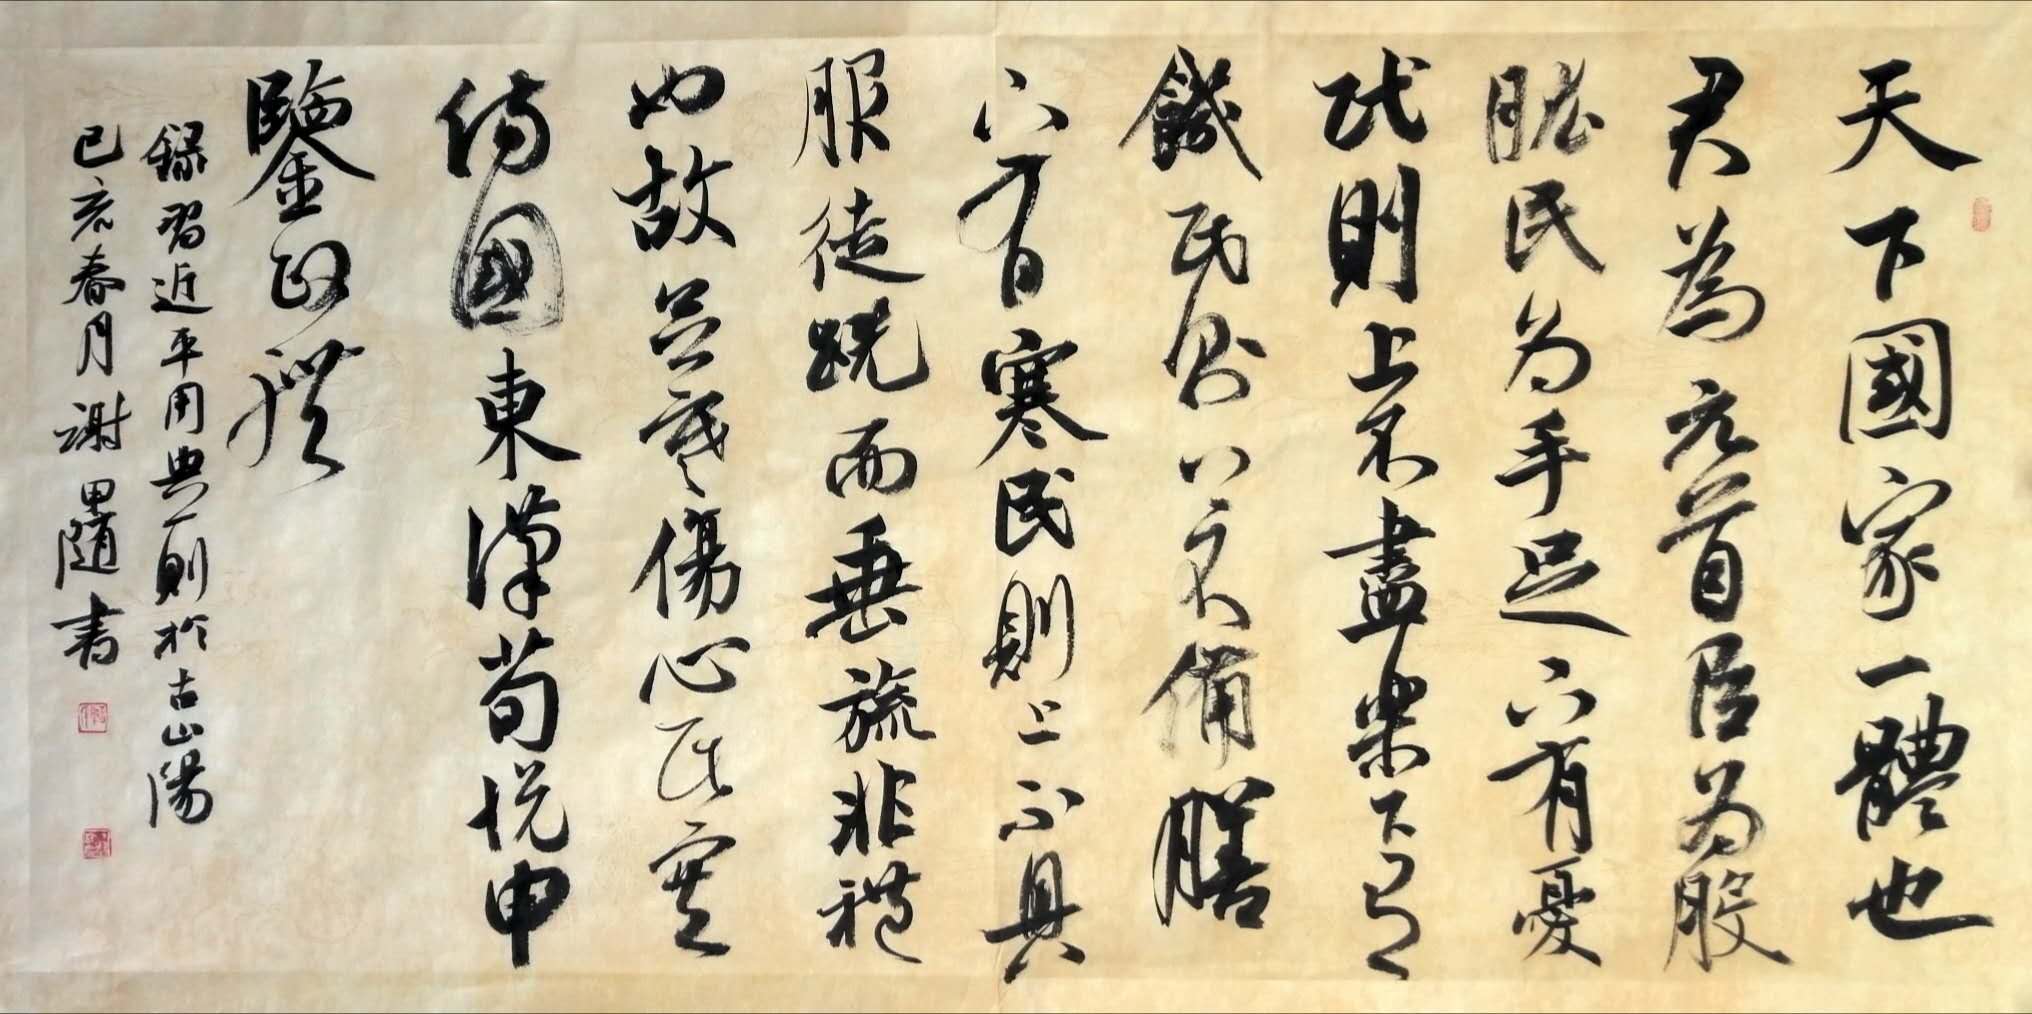 天下國家一體也
君為元首臣为股
肱民为手足下有憂
民則上不盡樂下有
饑民则上不備膳
下有寒民則上不具
服徒跣而垂旒非禮
也故足寒傷心民寒
傷國東漢荀悦申
鑒政體
録習近平用典一則於古山陽
己亥春月謝甲隨書